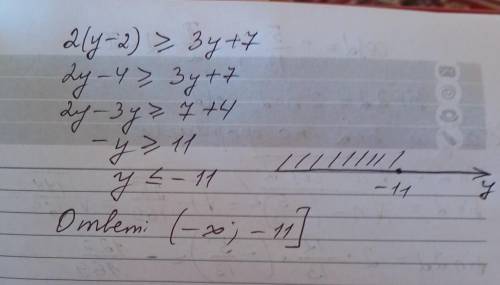 2(y-2) ≥ 3y+7
2y-4 ≥ 3y+7
2y-3y ≥ 7+4
-y ≥ 11
y ≤ -11
-11 y
Ответ: (-∞; -11]